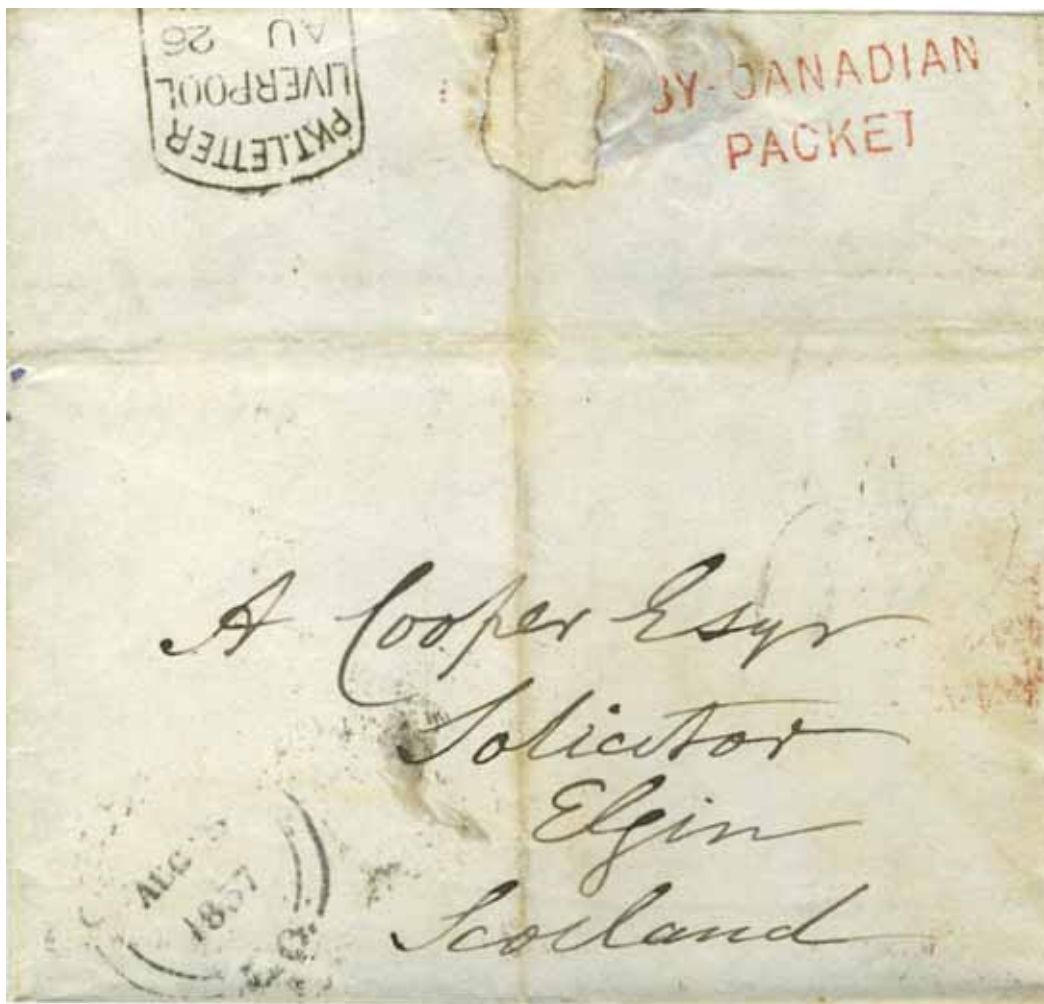 PKT.LETTER
LIVERPOOL
AU 26
BY-CANADIAN
PACKET
A Cooper Esqr
Solicitor
Elgin
Scotland
AUG
1857